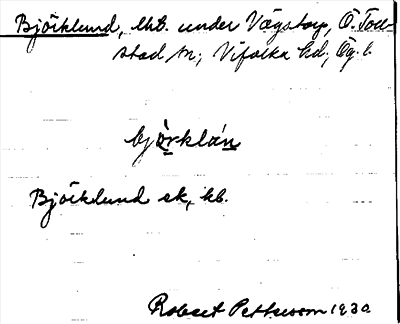 Björklund, lht. under Vägstorp, Ö. Tol-
stad sn; Vifolka hd; Ög. l.
björklán
Björklund ek, kb.
Robert Petterson 1930